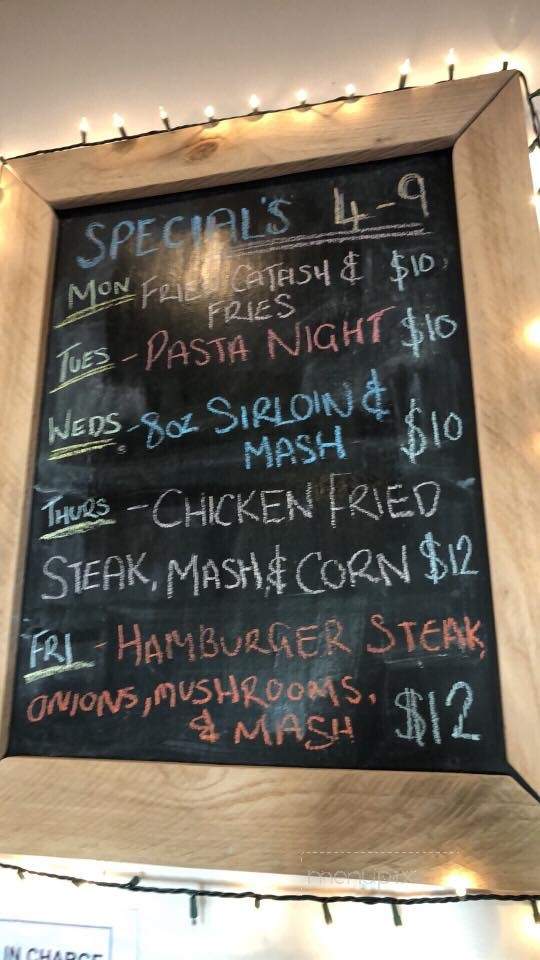 SPECIAL'S 4-9
MON FRIED CATFISH & $10
FRIES
TUES - PASTA NIGHT $10
WEDS - 8oz SIRLOIN &
MASH $10
THURS - CHICKEN FRIED
STEAK, MASH, & CORN $12
FRI - HAMBURGER STEAK,
ONIONS, MUSHROOMS,
& MASH $12
menupix
IN CHARGE